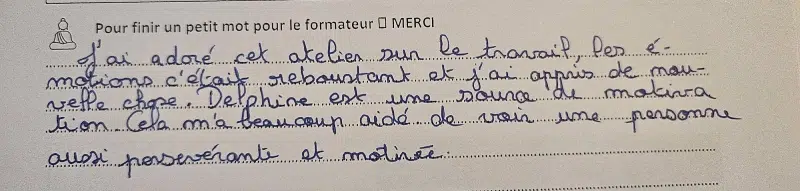 Pour finir un petit mot pour le formateur □ MERCI
J'ai adoré cet atelier sur le travail, les é-
motions c'était reboustant et j'ai appris de nou-
velle chose. Delphine est une source de motiva
tion. Cela m'a beaucoup aidé de voir une personne
aussi persevérante et motivée.